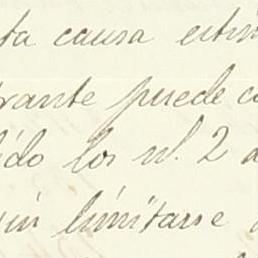 ta causa estim
trante puede co
lido los nl. 2 a
ún limitarse a